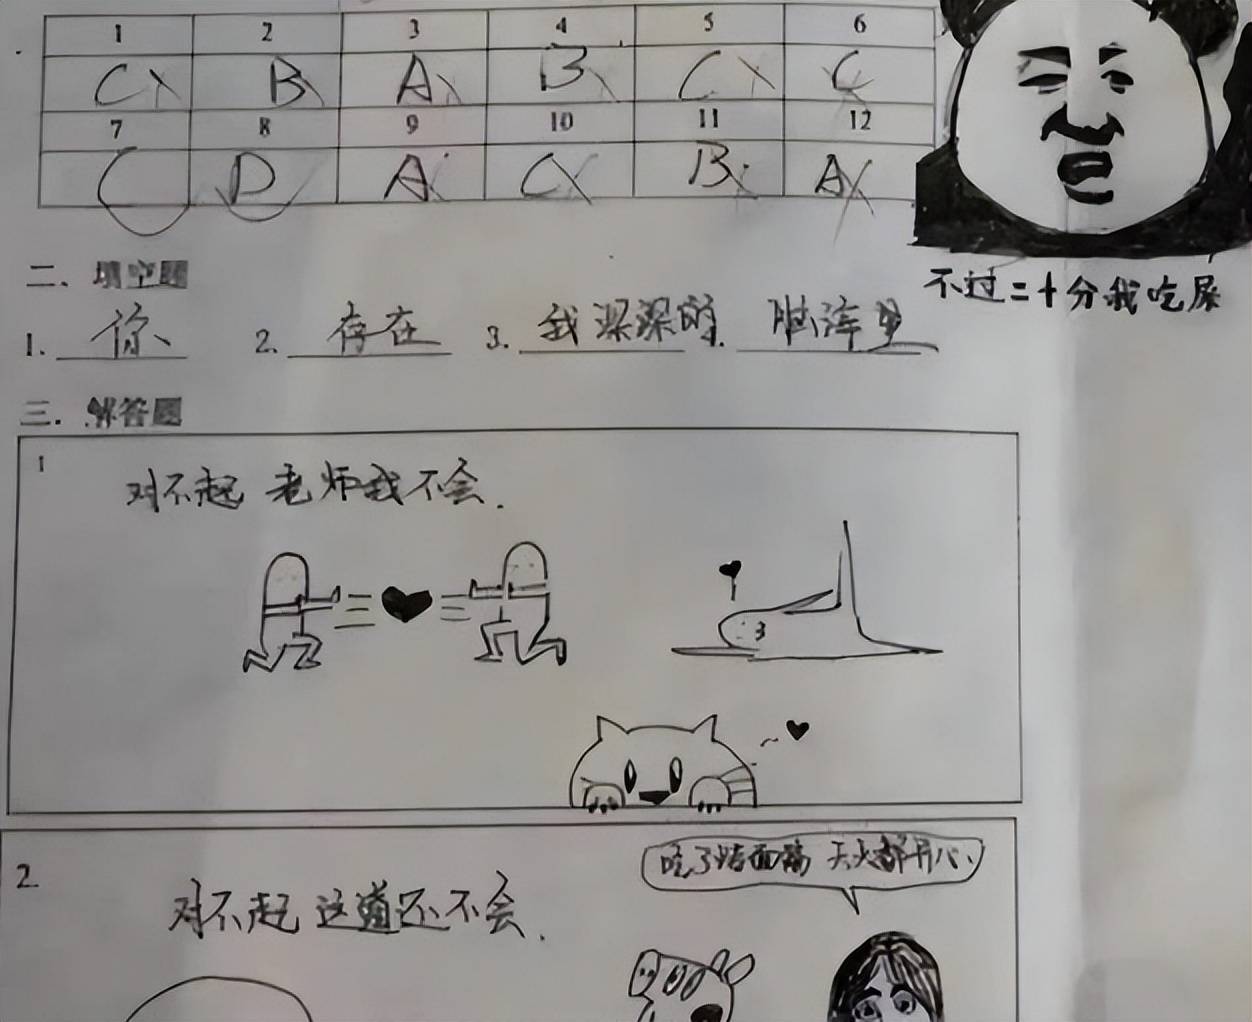 1 2 3 4 5 6
C B A B C C
7 8 9 10 11 12
C D A C B A
不过二十分我吃屎
二. 填空题
1. 你 2. 存在 3. 我深深的. 脑海里
三. 解答题
1
对不起 老师我不会.
2
吃了烤面筋 天天都开心
对不起 这道还不会.